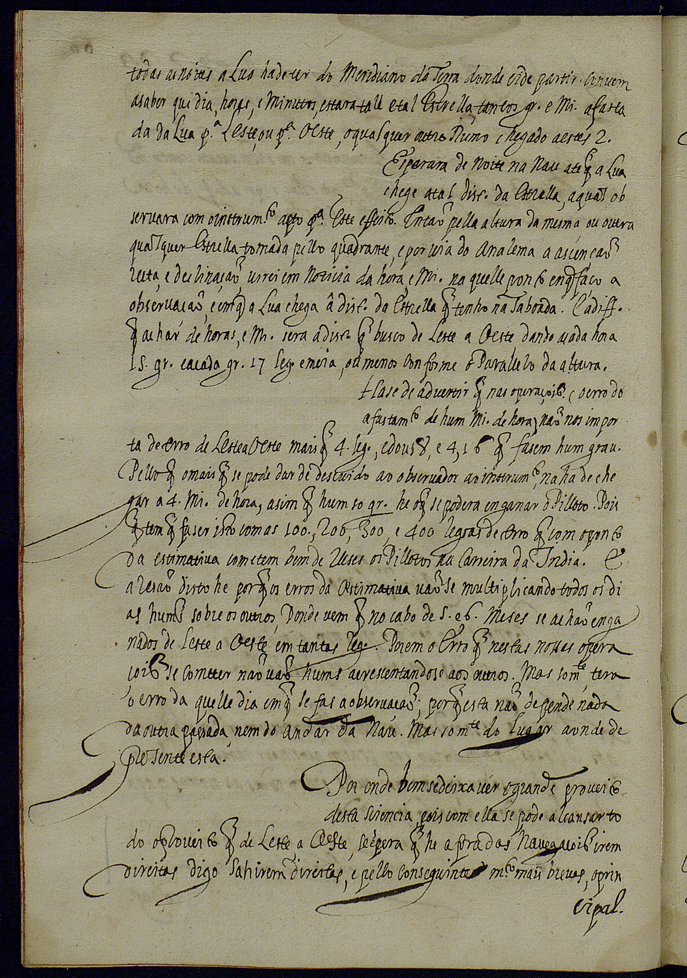 todas as noites a Lua hade ter do Meridiano da Terra donde eide partir. Convem
a saber qui dia, horas, e Minutos, estara tall e tal Estrella, tantos gr. e Mi. afasta
da da Lua p.ª Leste ou p.ª Oeste, o qualquer outro Rumo chegado a estes 2.
Esperara de Noite na Nau ate q̃ a Lua
chege a tal dist. da Estrella, a qual ob
servara com o instrum.to apto p.ª Este effeito. Entaõ pella altura da mesma ou outra
qualquer Estrella tomada pello quadrante, e por via do Analema a ascencaõ
recta, e declinaçaõ virei em Noticia da hora, e Mi. naquelle ponto em q̃ faço a
observacaõ, e em q̃ a Lua chega â dist. da Estrella q̃ tenho na Taboada. E a diff.
q̃ achar de horas, e Mi. sera a dist. q̃ busco de Leste a Oeste dando a cada hora
15. gr. e a cada gr. 17 leg. e meia, ou menos conforme o Parallelo da altura.
Hase de advertir q̃ nas operaçois, o erro do
afastam.to de hum Mi. de hora, naõ nos impor
ta de erro de Leste a Oeste mais q̃ 4. leg., e dous 8, e 4, 16 q̃ fasem hum grau.
Pello q̃ o mais q̃ se pode dar de descuido ao observador ao instrum.to naõ ha de che
gar a 4. Mi. de hora, asim q̃ hum so gr. he o q̃ se podera enganar o Pilloto. Pois
q̃ tem q̃ faser isto com as 100, 200, 300, e 400 legoas de erro q̃ com o ponto
da estimativa cometem bem de veses os Pillotos na Carreira da India. E
a resaõ disto he porq̃ os erros da Estimativa vaõ se multiplicando todos os di
as huns sobre os outros, Donde vem q̃ no cabo de 5. e 6. Meses se achaõ enga
nados de Leste a Oeste em tantas leg. Porem o Erro q̃ nestas nossas opera
cois se cometer naõ vaõ huns acresentandose aos outros. Mas som.te tera
o erro da quelle dia em q̃ se fas a observacaõ; porq̃ esta naõ depende nada
da outra passada, nem do andar da Nau. Mas som.te do lugar aonde de
presente está.
Por onde bem se deixa ver o grande proveito
desta Siencia, pois com ella se pode alcansar to
do o proveito q̃ de Leste a Oeste, se espera q̃ he a das Navegacois irem
direitas digo sahirem direitas, e pello conseguinte m.to mais breves, o prin
cipal.